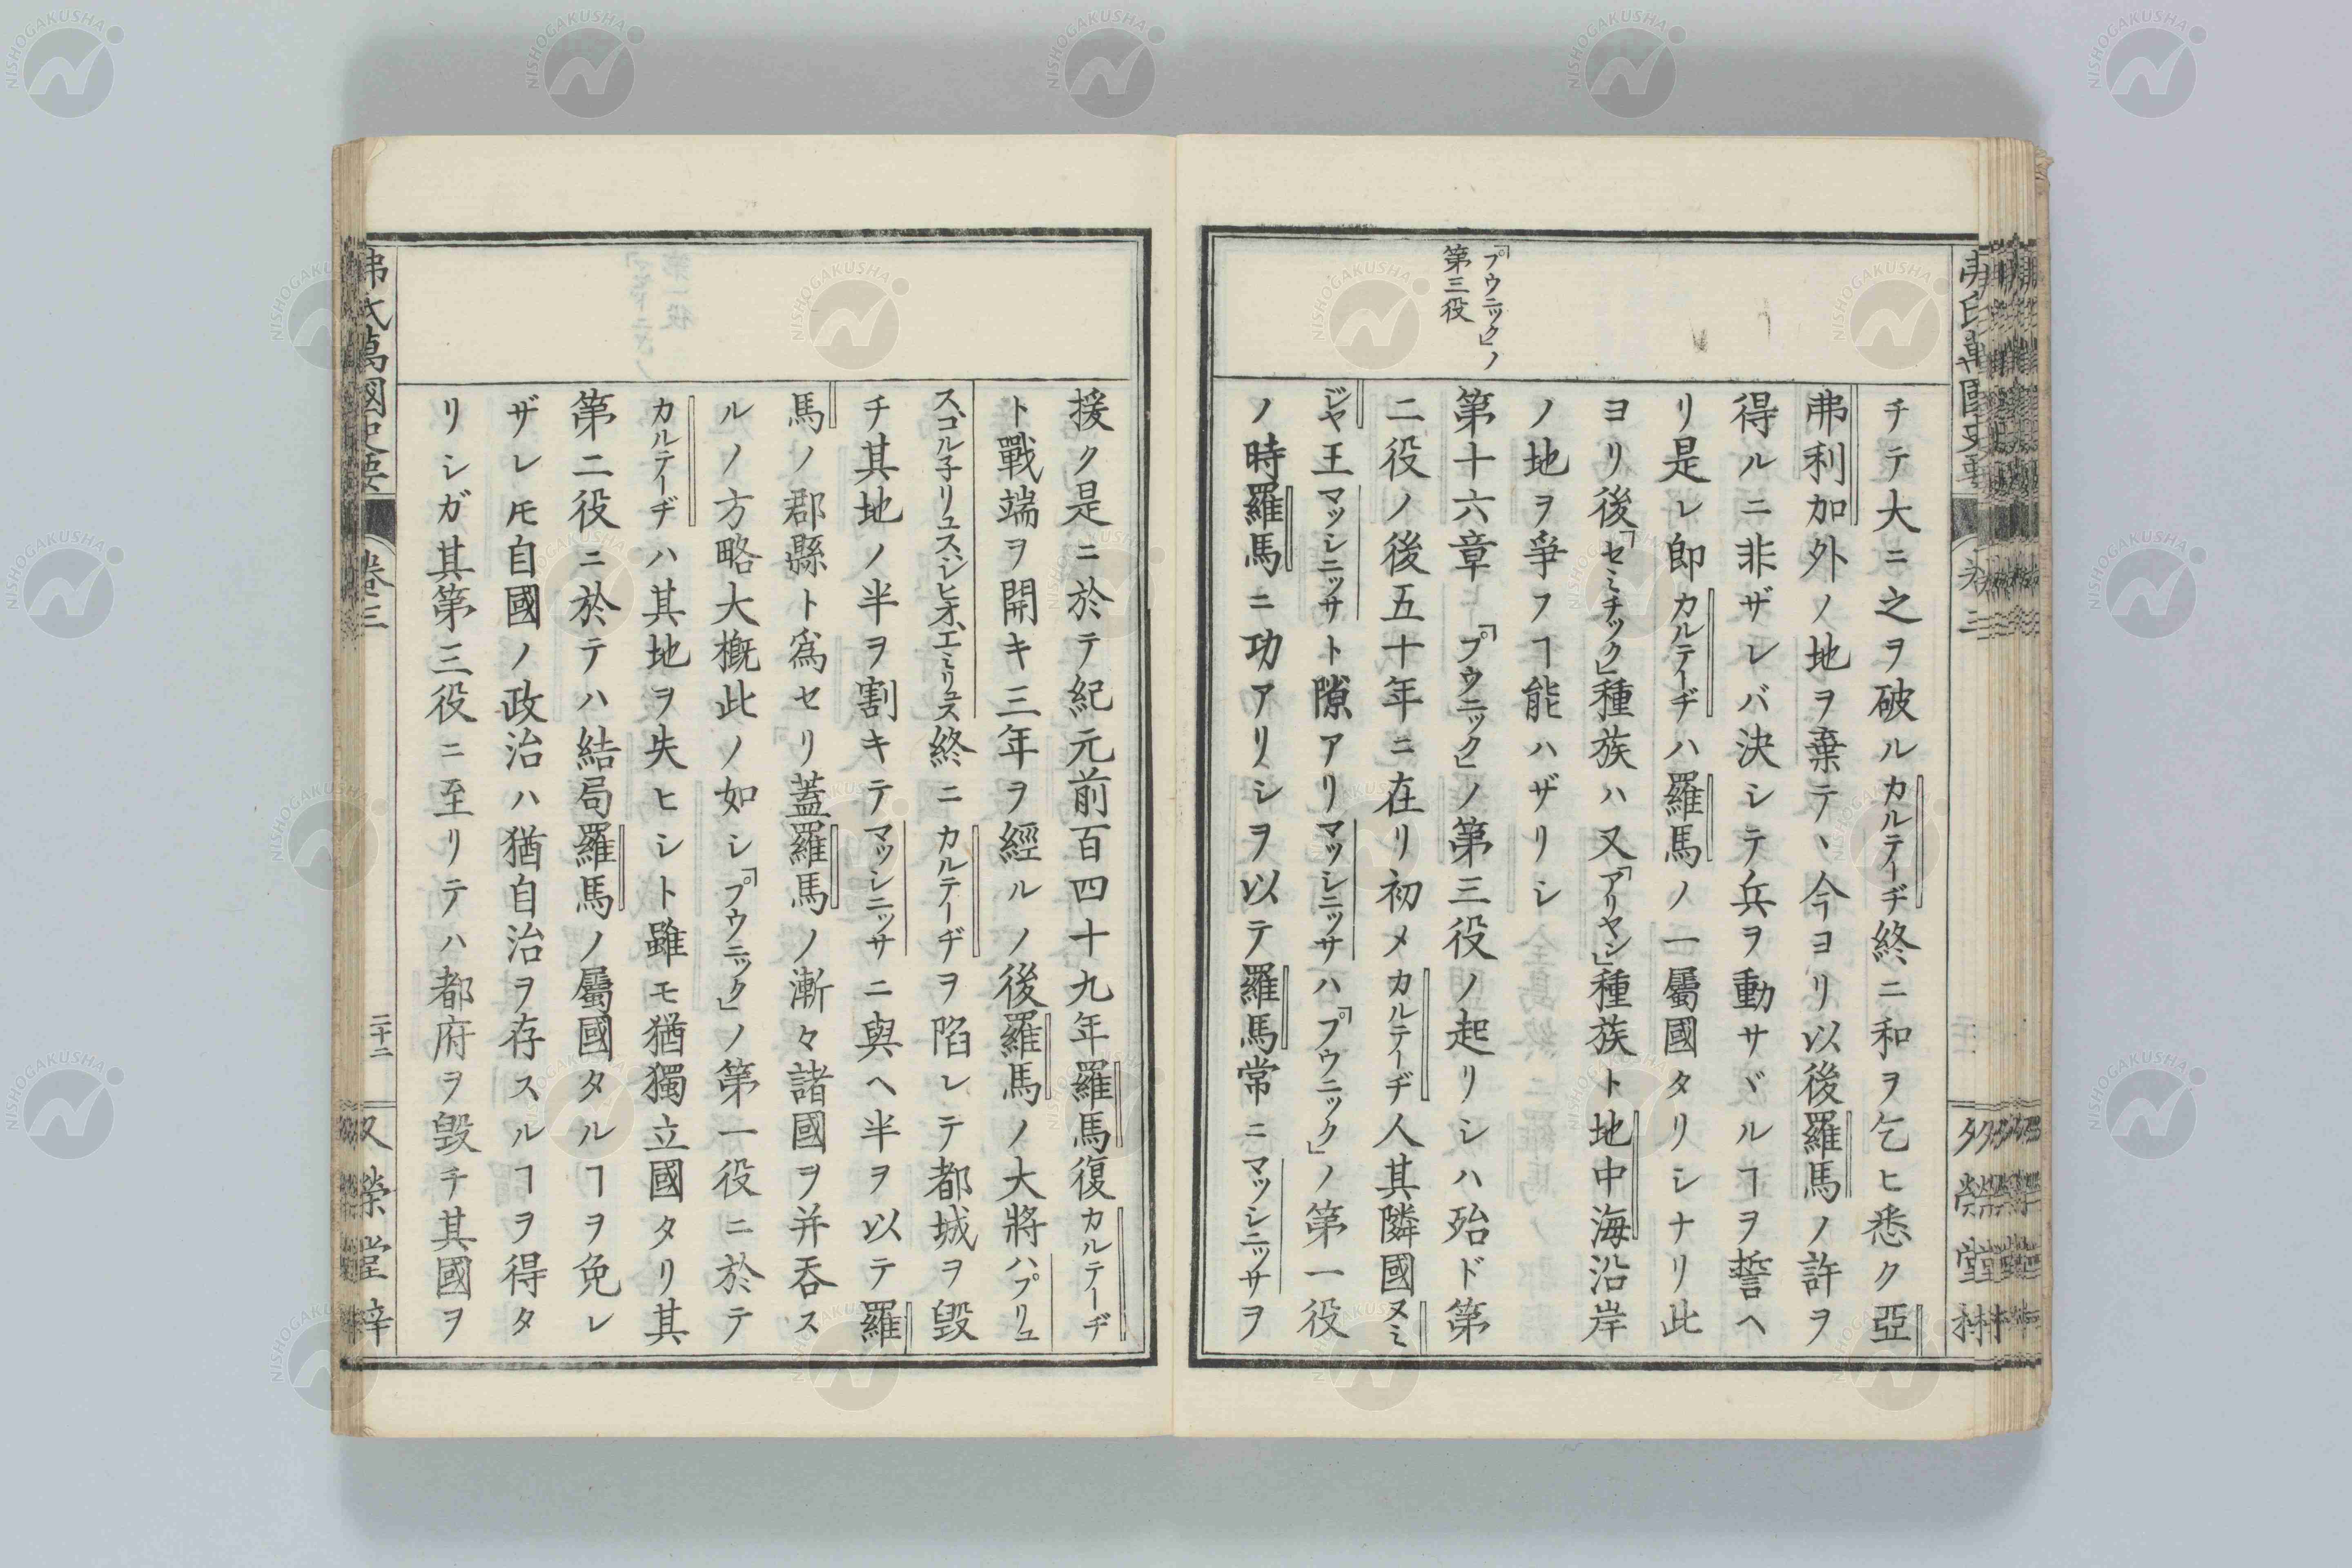 「プウニック」ノ
第三役
チテ大ニ之ヲ破ルカルテーヂ終ニ和ヲ乞ヒ悉ク亞
弗利加外ノ地ヲ棄テ、今ヨリ以後羅馬ノ許ヲ
得ルニ非ザレバ決シテ兵ヲ動サヾルヿヲ誓ヘ
リ是レ卽カルテーヂハ羅馬ノ一屬國タリシナリ此
ヨリ後「セミチック」種族ハ又「アリヤン」種族ト地中海沿岸
ノ地ヲ爭フヿ能ハザリシ
第十六章 「プウニック」ノ第三役ノ起リシハ殆ド第
二役ノ後五十年ニ在リ初メカルテーヂ人其隣國ヌミ
ジヤ王マッシニッサト隙アリマッシニッサハ「プウニック」ノ第一役
ノ時羅馬ニ功アリシヲ以テ羅馬常ニマッシニッサヲ
援ク是ニ於テ紀元前百四十九年羅馬復カルテーヂ
ト戰端ヲ開キ三年ヲ經ルノ後羅馬ノ大將ハプリュ
スゴル子リュスシピオ、エミリュス終ニカルテーヂヲ陷レテ都城ヲ毀
チ其地ノ半ヲ割キテマッシニッサニ與ヘ半ヲ以テ羅
馬ノ郡縣ト爲セリ蓋羅馬ノ漸々諸國ヲ并呑ス
ルノ方略大槪此ノ如シ「プウニック」ノ第一役ニ於テ
カルテーヂハ其地ヲ失ヒシト雖モ猶獨立國タリ其
第二役ニ於テハ結局羅馬ノ屬國タルヿヲ免レ
ザレ𪜈自國ノ政治ハ猶自治ヲ存スルヿヲ得タ
リシガ其第三役ニ至リテハ都府ヲ毀チ其國ヲ
弗氏萬國史要 卷三 二十二 又榮堂梓